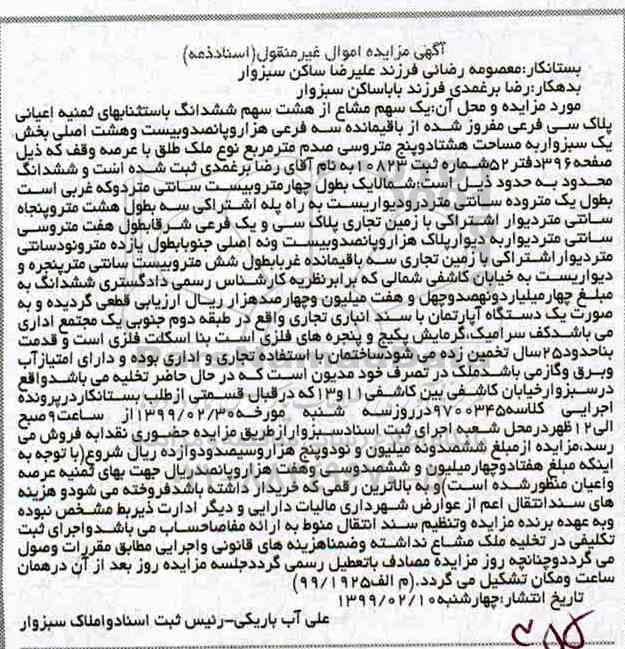 آگهی مزایده اموال غیرمنقول(اسنادذمه)
بستانکار:معصومه رضائی فرزند علیرضا ساکن سبزوار
بدهکار:رضا برغمدی فرزند باباساکن سبزوار
مورد مزایده و محل آن:یک سهم مشاع از هشت سهم ششدانگ باستثنابهای ثمنیه اعیانی
پلاک سی فرعی مفروز شده از باقیمانده سه فرعی هزاروپانصدوبیست وهشت اصلی بخش
یک سبزواربه مساحت هشتادوپنج متروسی صدم مترمربع نوع ملک طلق با عرصه وقف که ذیل
صفحه۳۹۶دفتر۵۲شماره ثبت ۱۰۸۲۳به نام آقای رضا برغمدی ثبت شده است و ششدانگ
محدود به حدود ذیل است:شمالابک بطول چهارمتروبیست سانتی متردوکه غربی است
بطول یک متروده سانتی متردرودیواریست به راه پله اشتراکی سه بطول هشت متروپنجاه
سانتی متردیوار اشتراکی با زمین تجاری پلاک سی و یک فرعی شرقابطول هفت متروسی
سانتی متردیواربه دیوارپلاک هزاروپانصدوبیست ونه اصلی جنوبابطول یازده مترونودسانتی
متردیواراشتراکی با زمین تجاری سه باقیمانده غربابطول شش متروبیست سانتی مترپنجره و
دیواریست به خیابان کاشفی شمالی که برابرنظریه کارشناس رسمی دادگستری ششدانگ به
مبلغ چهارمیلیاردونهصدوچهل و هفت میلیون وچهارصدهزار ریال ارزیابی قطعی گردیده و به
صورت یک دستگاه آپارتمان با سند انباری تجاری واقع در طبقه دوم جنوبی یک مجتمع اداری
می باشدکف سرامیک،گرمایش پکیج و پنجره های فلزی است بنا اسکلت فلزی است و قدمت
بناحدود۲۵سال تخمین زده می شودساختمان با استفاده تجاری و اداری بوده و دارای امتیازآب
وبرق وگازمی باشدملک در تصرف خود مدیون است که در حال حاضر تخلیه می باشدواقع
درسبزوارخیابان کاشفی بین کاشفی ۱۱و۱۳که درقبال قسمتی ازطلب بستانکاردرپرونده
اجرایی کلاسه۹۷۰۰۳۴۵درروزسه شنبه مورخه۱۳۹۹/۰۲/۳۰از ساعت۹صبح
الی۱۲ظهردرمحل شعبه اجرای ثبت اسنادسبزوارازطریق مزایده حضوری نقدابه فروش می
رسد،مزایده ازمبلغ ششصدونه میلیون و نودوپنج هزاروسیصدودوازده ریال شروع(با توجه به
اینکه مبلغ هفتادوچهارمیلیون و ششصدوسی وهفت هزاروپانصدریال جهت بهای ثمنیه عرصه
واعیان منظورشده است)و به بالاترین رقمی که خریدار داشته باشدفروخته می شودو هزینه
های سندانتقال اعم از عوارض شهرداری مالیات دارایی و دیگر ادارت ذیربط مشخص نبوده
وبه عهده برنده مزایده وتنظیم سند انتقال منوط به ارائه مفاصاحساب می باشدواجرای ثبت
تکلیفی در تخلیه ملک مشاع نداشته وضمناهزینه های قانونی واجرایی مطابق مقررات وصول
می گرددوچنانچه روز مزایده مصادف باتعطیل رسمی گرددجلسه مزایده روز بعد از آن درهمان
ساعت ومکان تشکیل می گردد.(م الف۹۹/۱۹۲۵)
تاریخ انتشار:چهارشنبه۱۳۹۹/۰۲/۱۰
علی آب باریکی-رئیس ثبت اسنادواملاک سبزوار